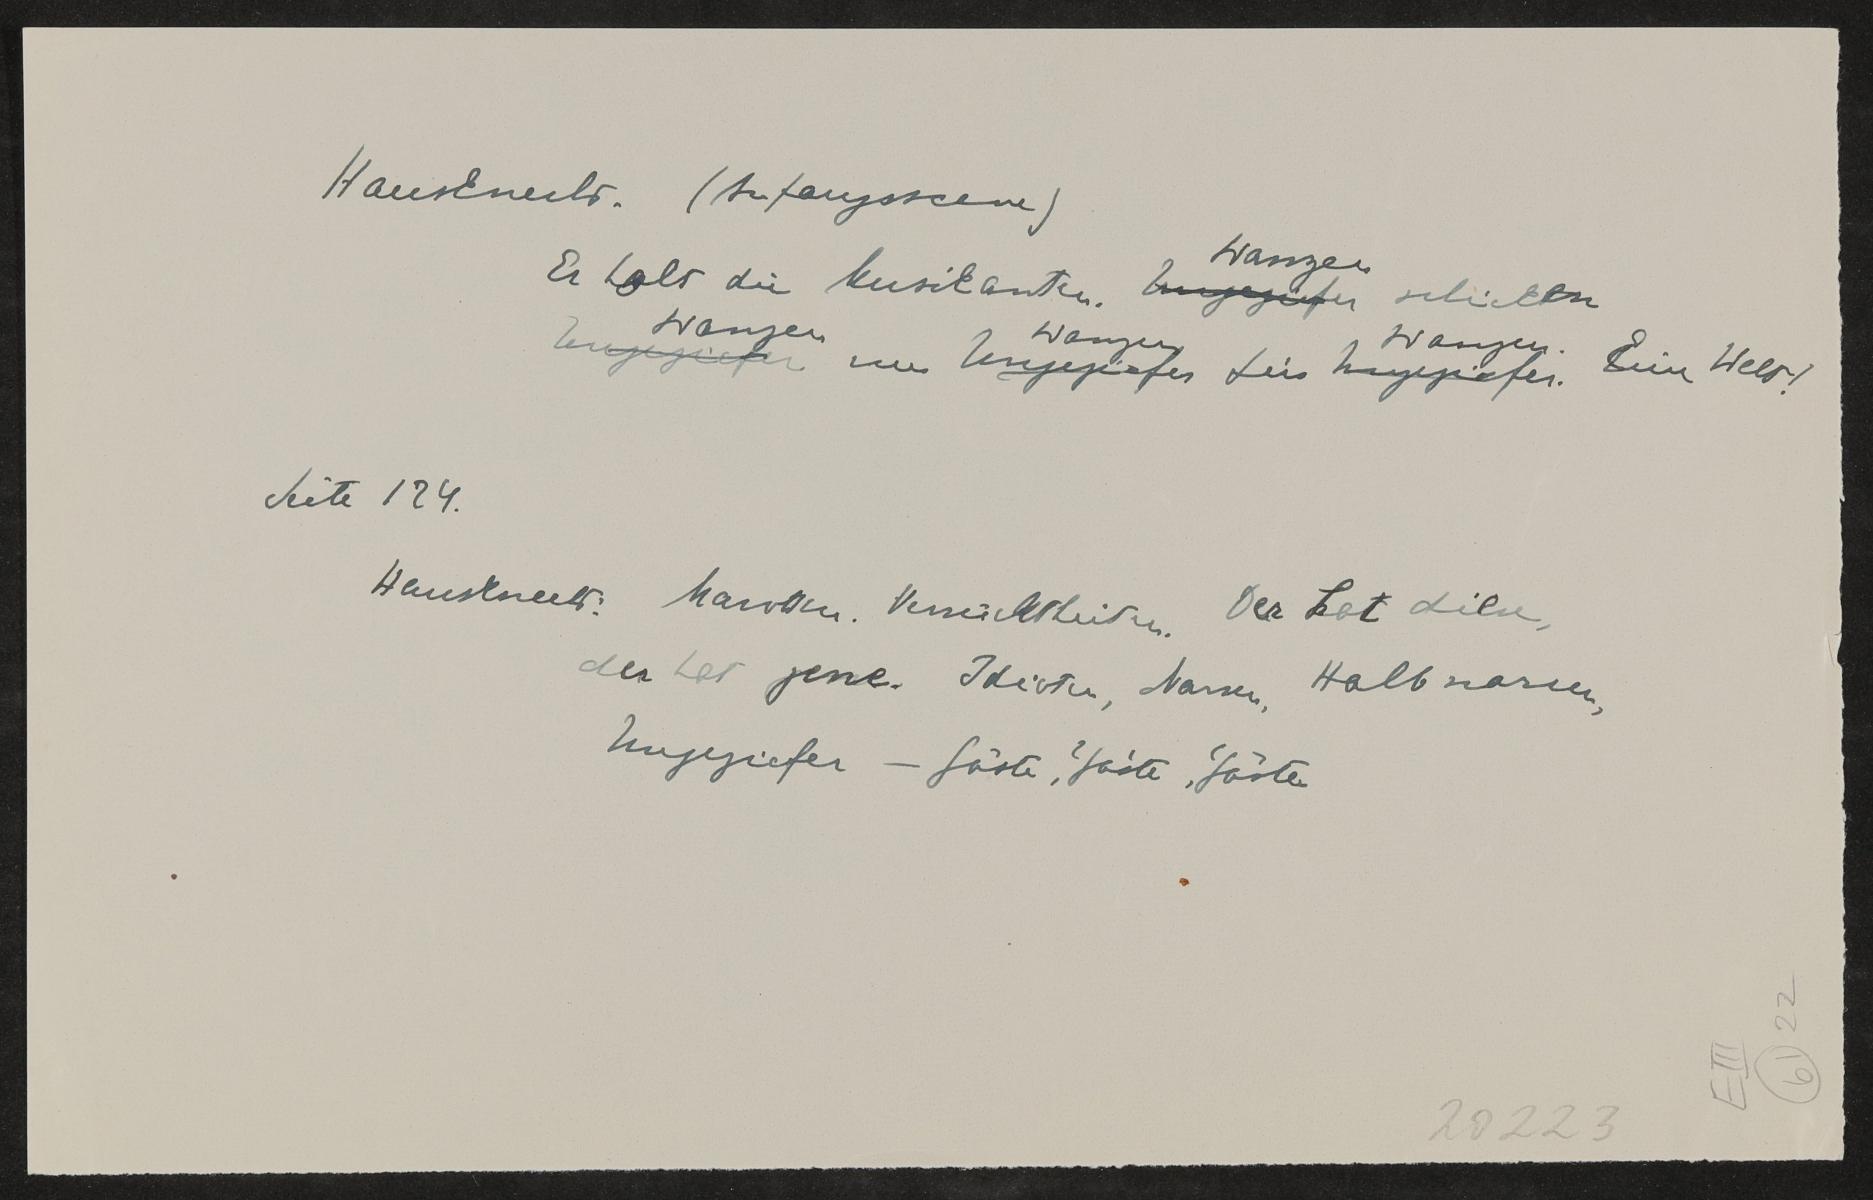 Hausknecht. (Anfangsscene)
Wanzen
Er holt die Musikanten. Ungeziefer schicken
Wanzen Wanzen Wanzen.
Ungeziefer um Ungeziefer Ungeziefer. Eine Welt!
Seite 124.
Hausknecht: Marotten. Verrücktheiten. Der hat diese,
der hat jene. Idioten, Narren, Halbnarren,
Ungeziefer — Gäste, Gäste, Gäste
E III
61 22
20223